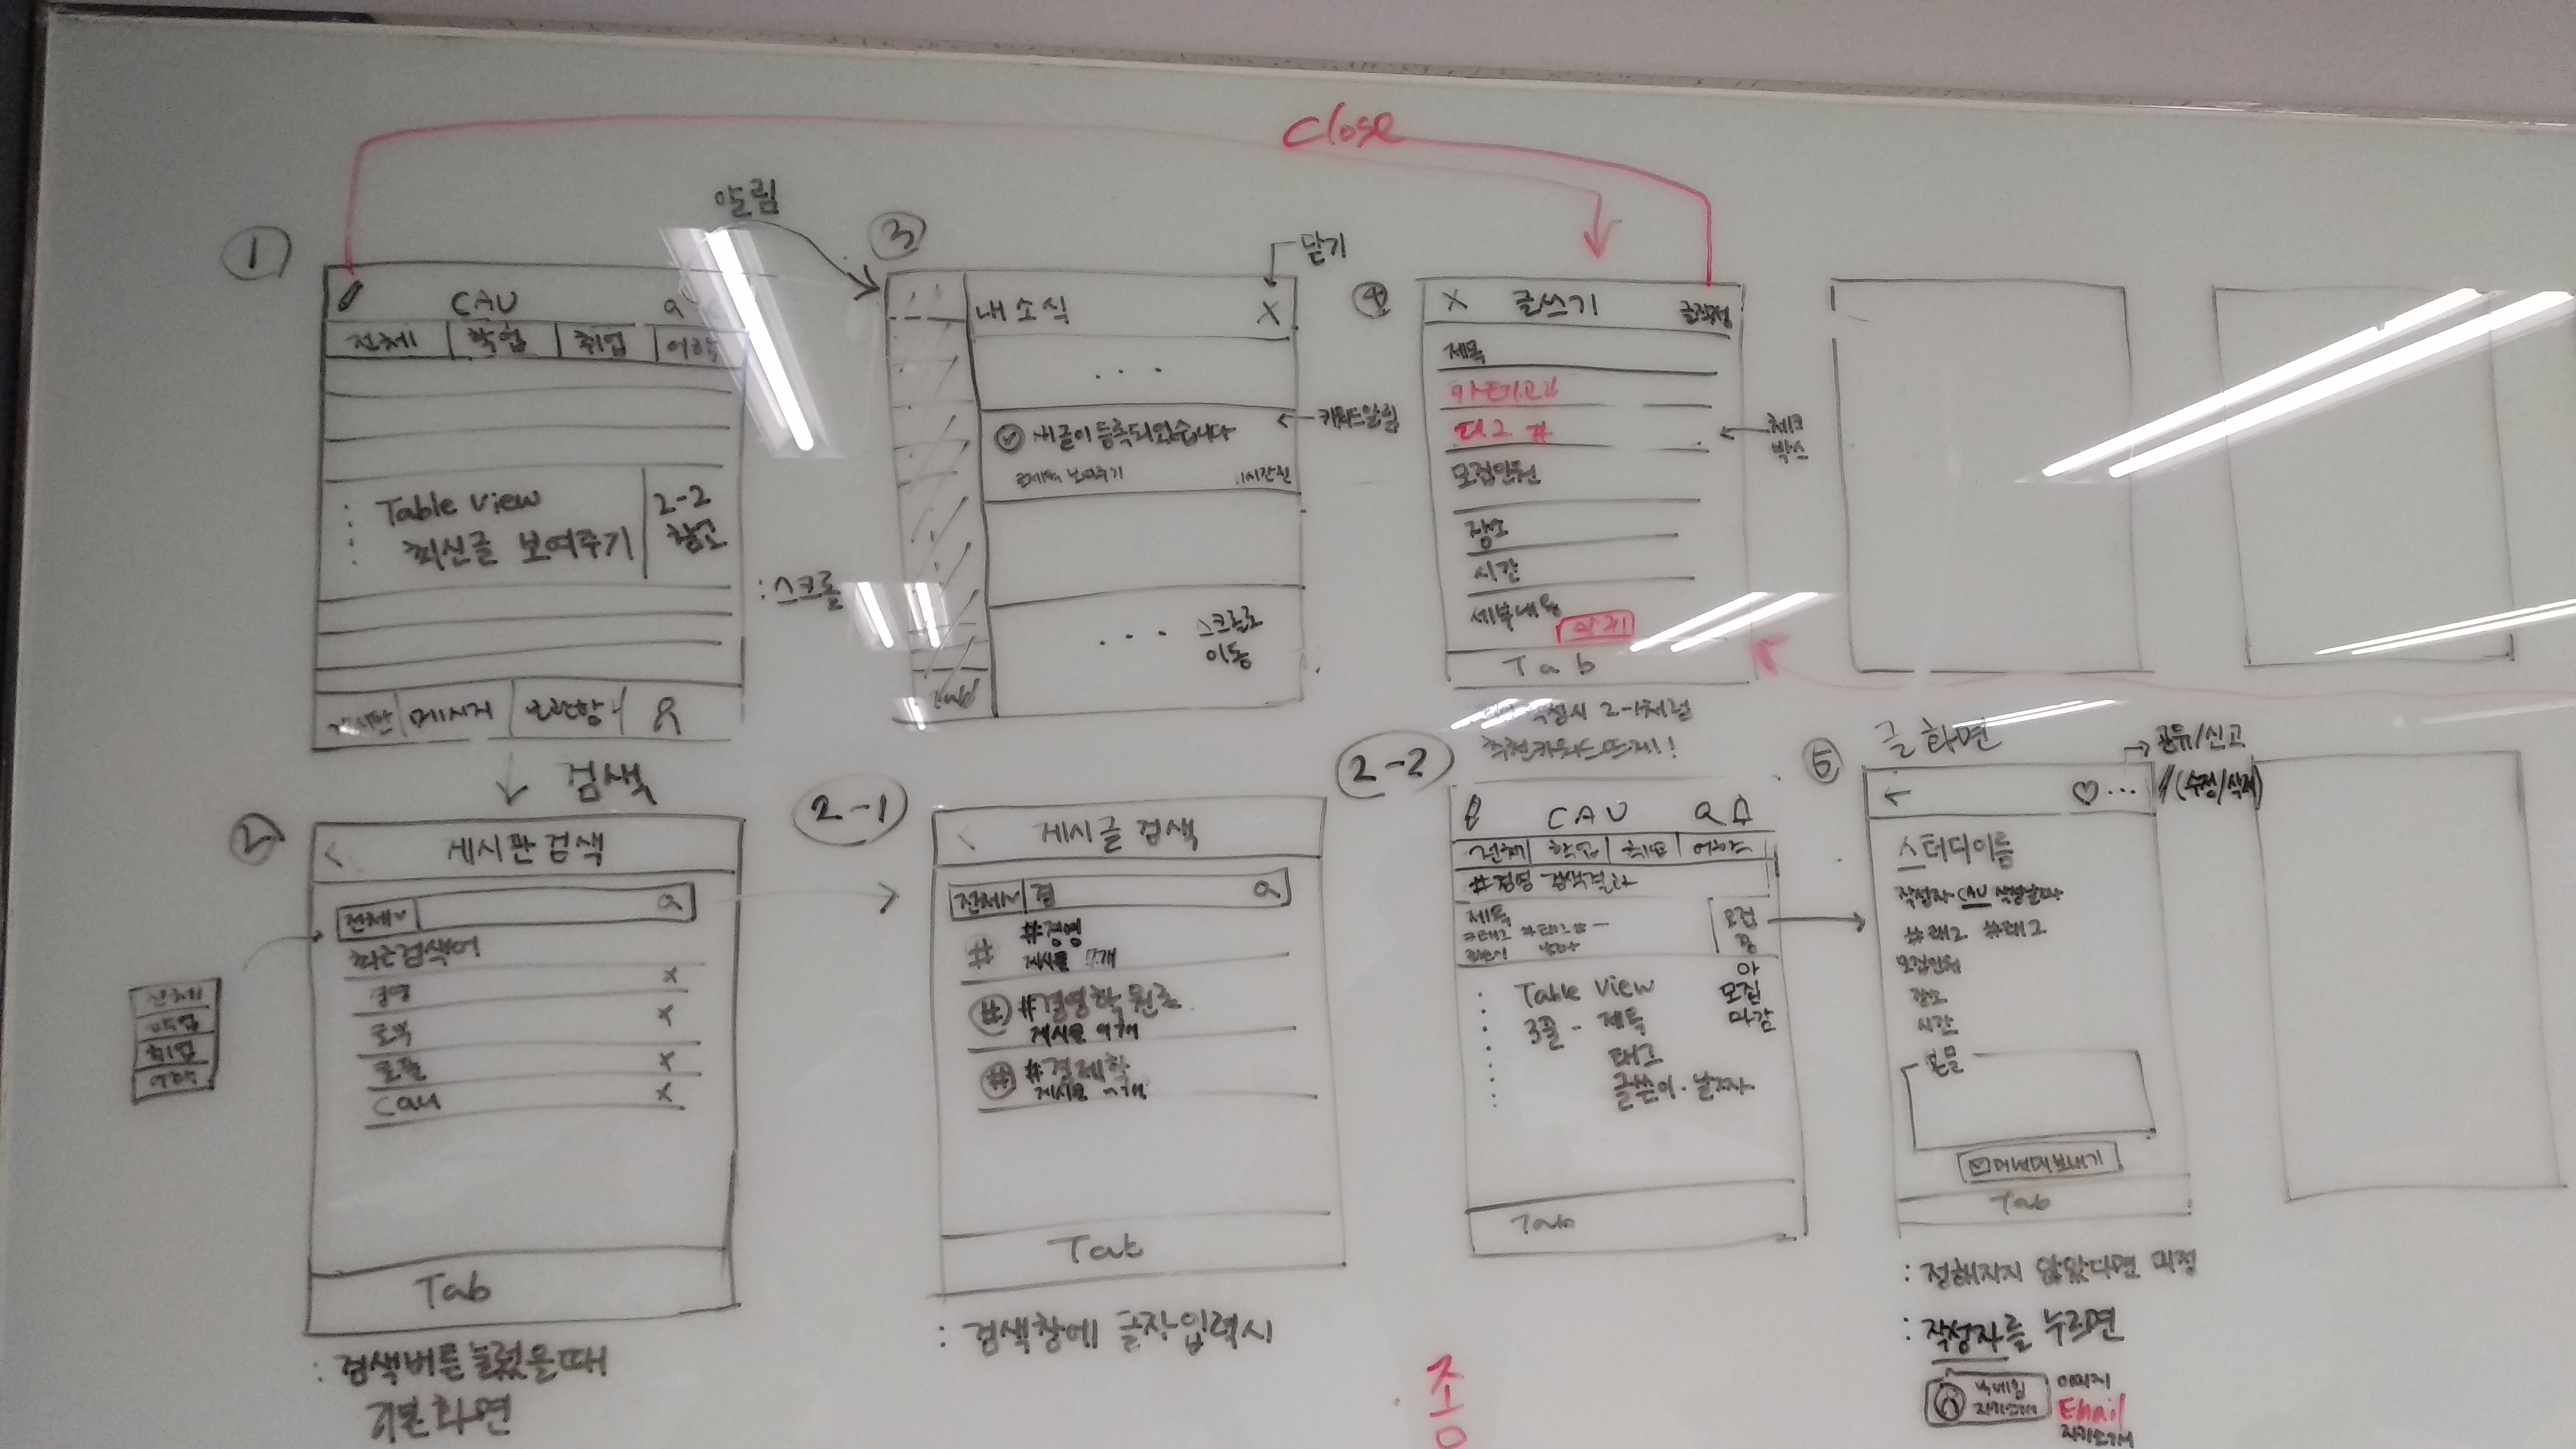 close
알림
①
CAU
전체 | 학업 | 취업 | 어학
Table View
최신글 보여주기
2-2
참고
: 스크롤
메시지 | 보관함
검색
③
내 소식
X
닫기
. . .
새글이 등록되었습니다
글제목 보여주기
1시간전
키워드알림
. . . 스크롤
이동
Tab
④
X 글쓰기
제목
카테고리
태그 #
체크
박스
모집인원
장소
시간
세부내용
Tab
2-1처럼
추천키워드 뜨게!
②
< 게시판 검색
전체
최근검색어
경영 X
토익 X
토플 X
CAU X
전체
학업
취업
어학
Tab
: 검색버튼 눌렀을때
기본화면
2-1
< 게시글 검색
전체 경
#
#경영
게시물 7개
#
#경영학원론
게시물
#
#경제학
게시물
Tab
: 검색창에 글자 입력시
2-2
CAU
전체 | 학업 | 취업 | 어학
#경영 검색결과
제목
#태그 #태그
글쓴이 날짜
모집
중
Table View
3줄 - 제목
태그
글쓴이 · 날짜
모집
마감
Tab
⑤
글 화면
공유/신고
(수정/삭제)
← ♡ ...
스터디이름
작성자 CAU 작성날짜
#태그 #태그
모집인원
장소
시간
본문
메세지 보내기
Tab
: 정해지지 않았다면 미정
: 작성자를 누르면
닉네임
자기소개
이미지
Email
자기소개